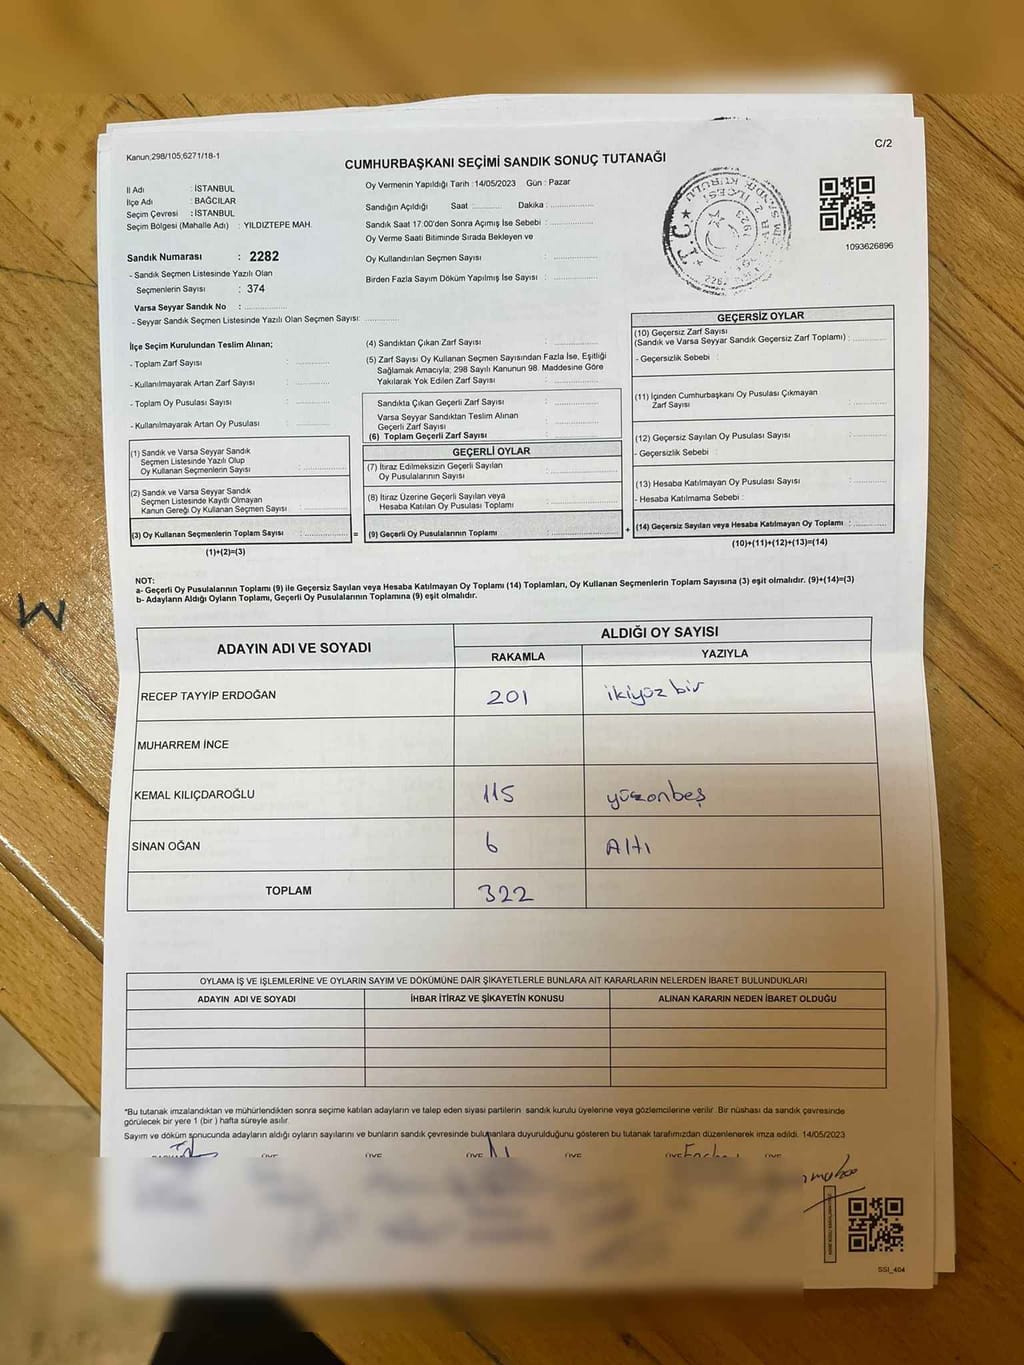 Kanun;298/105;6271/18-1
C/2
CUMHURBAŞKANI SEÇİMİ SANDIK SONUÇ TUTANAĞI
İl Adı : İSTANBUL
İlçe Adı : BAĞCILAR
Seçim Çevresi : İSTANBUL
Seçim Bölgesi (Mahalle Adı) : YILDIZTEPE MAH.
Sandık Numarası : 2282
- Sandık Seçmen Listesinde Yazılı Olan
Seçmenlerin Sayısı : 374
Varsa Seyyar Sandık No : ..............
- Seyyar Sandık Seçmen Listesinde Yazılı Olan Seçmen Sayısı: ............
Oy Vermenin Yapıldığı Tarih :14/05/2023 Gün : Pazar
Sandığın Açıldığı Saat : ............ Dakika : ..............
Sandık Saat 17:00'den Sonra Açımış İse Sebebi : ..............
Oy Verme Saati Bitiminde Sırada Bekleyen ve
Oy Kullandırılan Seçmen Sayısı : ..............
Birden Fazla Sayım Döküm Yapılmış İse Sayısı : ..............
T.C.
1923
1093626896
İlçe Seçim Kurulundan Teslim Alınan;
- Toplam Zarf Sayısı : ............
- Kullanılmayarak Artan Zarf Sayısı : ............
- Toplam Oy Pusulası Sayısı : ............
- Kullanılmayarak Artan Oy Pusulası : ............
(1) Sandık ve Varsa Seyyar Sandık
Seçmen Listesinde Yazılı Olup
Oy Kullanan Seçmenlerin Sayısı : ............
(2) Sandık ve Varsa Seyyar Sandık
Seçmen Listesinde Kayıtlı Olmayan
Kanun Gereği Oy Kullanan Seçmen Sayısı : ............
(3) Oy Kullanan Seçmenlerin Toplam Sayısı : ............
(1)+(2)=(3)
(4) Sandıktan Çıkan Zarf Sayısı : ............
(5) Zarf Sayısı Oy Kullanan Seçmen Sayısından Fazla İse, Eşitliği
Sağlamak Amacıyla; 298 Sayılı Kanunun 98. Maddesine Göre
Yakılarak Yok Edilen Zarf Sayısı : ............
Sandıkta Çıkan Geçerli Zarf Sayısı : ............
Varsa Seyyar Sandıktan Teslim Alınan
Geçerli Zarf Sayısı : ............
(6) Toplam Geçerli Zarf Sayısı : ............
GEÇERLİ OYLAR
(7) İtiraz Edilmeksizin Geçerli Sayılan
Oy Pusulalarının Sayısı : ............
(8) İtiraz Üzerine Geçerli Sayılan veya
Hesaba Katılan Oy Pusulası Toplamı : ............
= (9) Geçerli Oy Pusulalarının Toplamı : ............ +
GEÇERSİZ OYLAR
(10) Geçersiz Zarf Sayısı
(Sandık ve Varsa Seyyar Sandık Geçersiz Zarf Toplamı) : ............
- Geçersizlik Sebebi :
(11) İçinden Cumhurbaşkanı Oy Pusulası Çıkmayan
Zarf Sayısı : ............
(12) Geçersiz Sayılan Oy Pusulası Sayısı : ............
- Geçersizlik Sebebi :
(13) Hesaba Katılmayan Oy Pusulası Sayısı : ............
- Hesaba Katılmama Sebebi :
(14) Geçersiz Sayılan veya Hesaba Katılmayan Oy Toplamı : ............
(10)+(11)+(12)+(13)=(14)
NOT:
a- Geçerli Oy Pusulalarının Toplamı (9) ile Geçersiz Sayılan veya Hesaba Katılmayan Oy Toplamı (14) Toplamları, Oy Kullanan Seçmenlerin Toplam Sayısına (3) eşit olmalıdır. (9)+(14)=(3)
b- Adayların Aldığı Oyların Toplamı, Geçerli Oy Pusulalarının Toplamına (9) eşit olmalıdır.
ADAYIN ADI VE SOYADI
ALDIĞI OY SAYISI
RAKAMLA YAZIYLA
RECEP TAYYİP ERDOĞAN 201 ikiyüz bir
MUHARREM İNCE
KEMAL KILIÇDAROĞLU 115 yüzonbeş
SİNAN OĞAN 6 Altı
TOPLAM 322
OYLAMA İŞ VE İŞLEMLERİNE VE OYLARIN SAYIM VE DÖKÜMÜNE DAİR ŞİKAYETLERLE BUNLARA AİT KARARLARIN NELERDEN İBARET BULUNDUKLARI
ADAYIN ADI VE SOYADI İHBAR İTİRAZ VE ŞİKAYETİN KONUSU ALINAN KARARIN NEDEN İBARET OLDUĞU
*Bu tutanak imzalandıktan ve mühürlendikten sonra seçime katılan adayların ve talep eden siyasi partilerin sandık kurulu üyelerine veya gözlemcilerine verilir. Bir nüshası da sandık çevresinde
görülecek bir yere 1 (bir ) hafta süreyle asılır.
Sayım ve döküm sonucunda adayların aldığı oyların sayılarını ve bunların sandık çevresinde bulunanlara duyurulduğunu gösteren bu tutanak tarafımızdan düzenlenerek imza edildi. 14/05/2023
ÜYE ÜYE ÜYE ÜYE ÜYE ÜYE
SSI_404